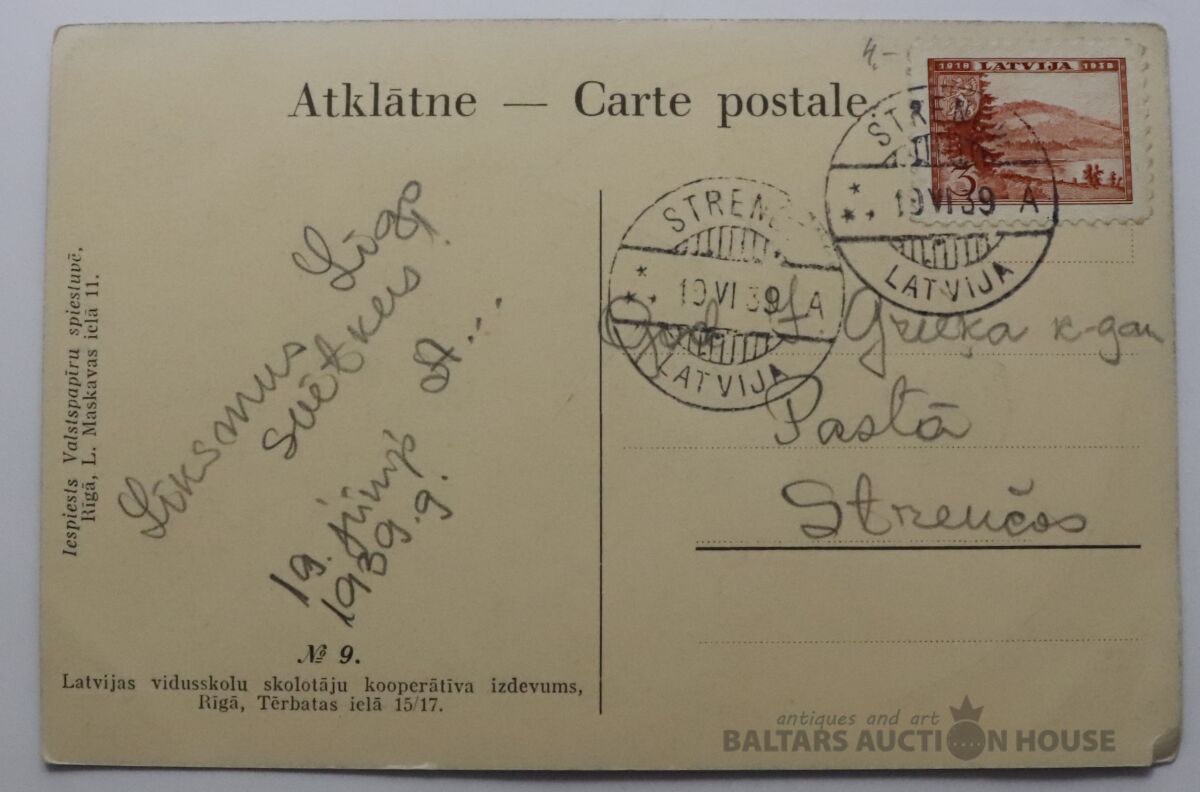 4.-
1918 LATVIJA 1938
3
Atklātne — Carte postale
STREN
19 VI 39 A
LATVIJA
STREN
19 VI 39 A
LATVIJA
Līksmus Līgo
svētkus
A...
19. jūnijs
1939. g.
God. Grieķa k-gam
Pastā
Strenčos
Iespiests Valstspapīru spiestuvē,
Rīgā, L. Maskavas ielā 11.
№ 9.
Latvijas vidusskolu skolotāju kooperātīva izdevums,
Rīgā, Tērbatas ielā 15/17.
antiques and art
BALTARS AUCTION HOUSE